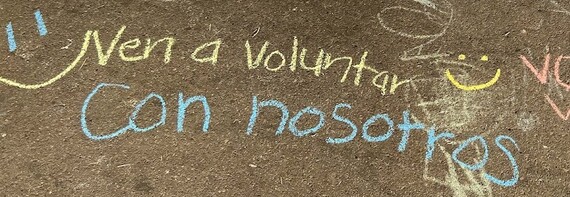 Ven a voluntar
Con nosotros